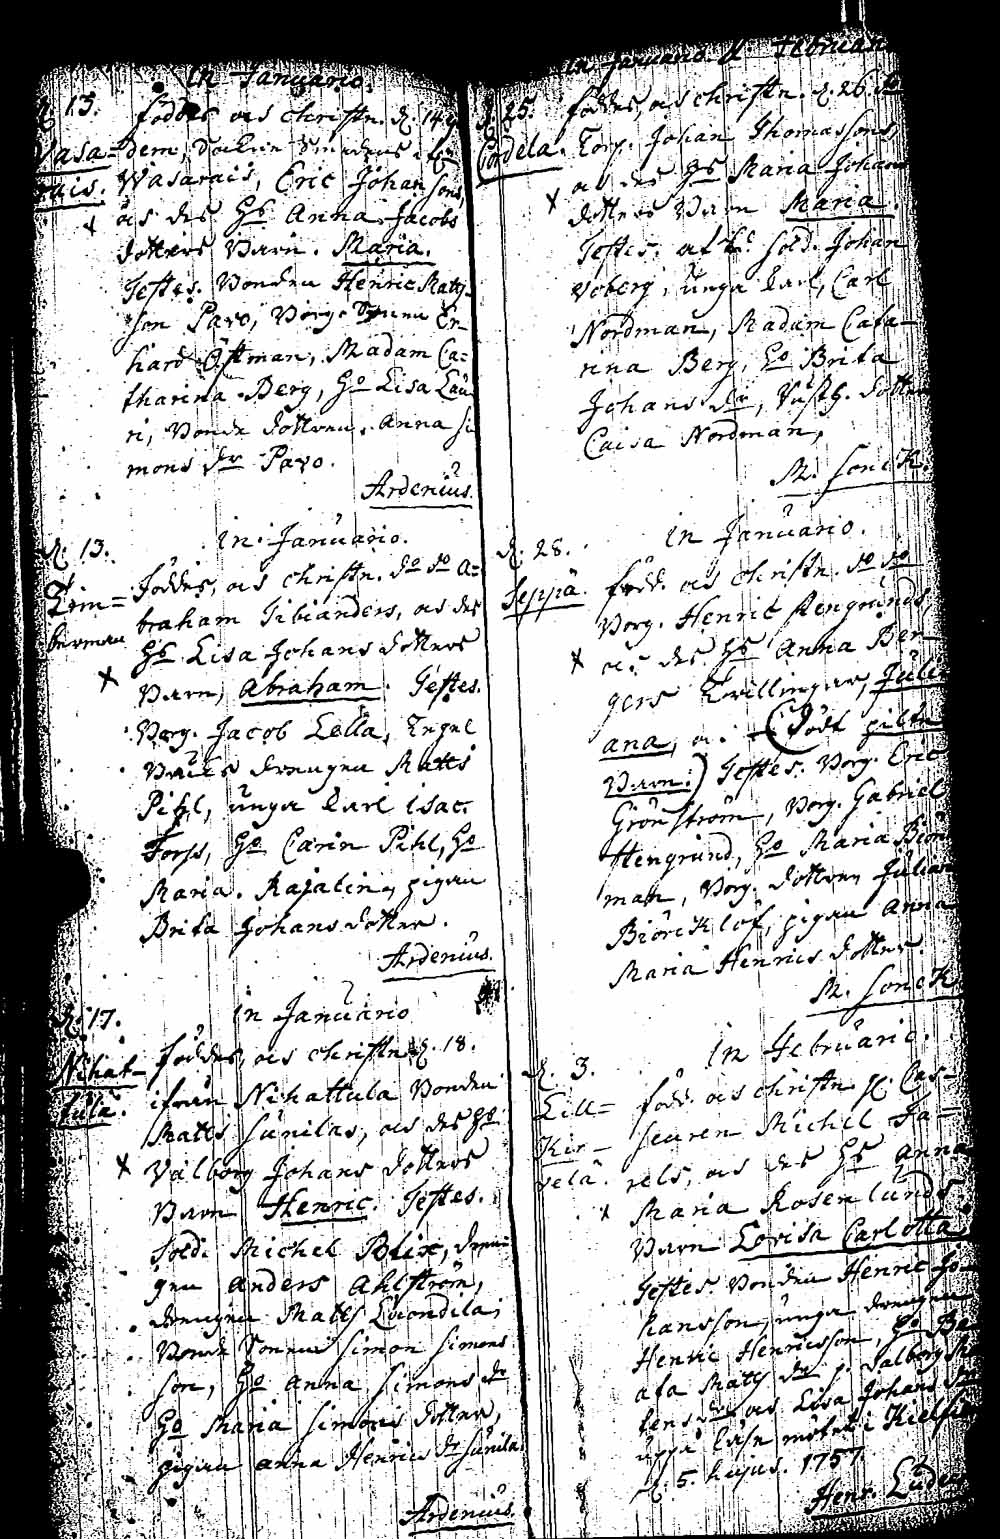 In Januario.
d. 13. föddes ocs christn. d. 14
Wasa= dem,
rais. Wasarais, Eric Johansons,
ocs des Hs Anna Jacobs
dotters Barn. Maria.
Testes. Bonden Henric Mats
son Pavo, Borg. Sonen Er-
hard Östman, Madam Ca=
tharina Berg, Ho Lisa Lau
ri, Bonde dottren. Anna Si
mons dr Pavo.
Ardenius.
In Januario.
d. 13. Föddes, ocs christn. do do A=
Tim= braham Tibianders, ocs des
berman Hs Lisa Johans dotters
Barn, Abraham. Testes.
Borg. Jacob Lella,
drengen Matts
Pihl, unga Karl Isac
Forss, Ho Carin Pihl, Ho
Maria. Rajalin, pigan
Brita Johans dotter.
Ardenius.
In Januario
d. 17. föddes, ocs christn. d. 18.
Nihat= ifrån Nihattula Bonden
tula. Matts Sunilas, ocs des Hs
Valborg Johans dotters
Barn Henric. Testes.
Sold. Michel Blix, dren
gen Anders Ahlström,
drengen Matts
Bonde Sonen Simon Simons
son, Ho Anna Simons dr
Ho Maria Simons dotter,
pigan Anna Henrics dr Sunila.
Ardenius.
In Januario & Februari
d. 25. föddes, ocs christn. d. 26.
Cordela. Torp. Johan Thomassons,
ocs des Hs Maria Johans
dotters Barn Maria.
Testes. Sold. Johan
Voberg, unga Karl, Carl
Nordman, Madam Cata-
rina Berg, Ho Brita
Johans dr, dotter
Caisa Nordman,
M. Sonck.
In Januario.
d. 28. född. ocs christn. do do
Seppä. Borg. Henric Rengrunds,
ocs des Hs Anna Ber-
gers Twillingar, Juli
ana, oc. (Död född
Barn:) Testes. Borg. Eric
Grönström, Borg. Gabriel
Hengrund, Ho Maria Biör
man, Borg. dottren Julian
Biörcklöf, pigan Anna
Maria Henrics dotter.
M. Sonck
In Februario.
d. 3. född. ocs christn. Cas-
Lill= seuren Michel Ta=
Kir- rels, ocs des Hs Anna
velä. Maria Rosenlunds
Barn Lovisa Carlotta
Testes. Bonden Henric Jo
hansson, unga drengen
Henric Henricsson, Ho Be
ata Mats dr p. Valborg
tens dr ocs Lisa Johans
uppå
d. 5. hujus. 1757
Henr. Luden